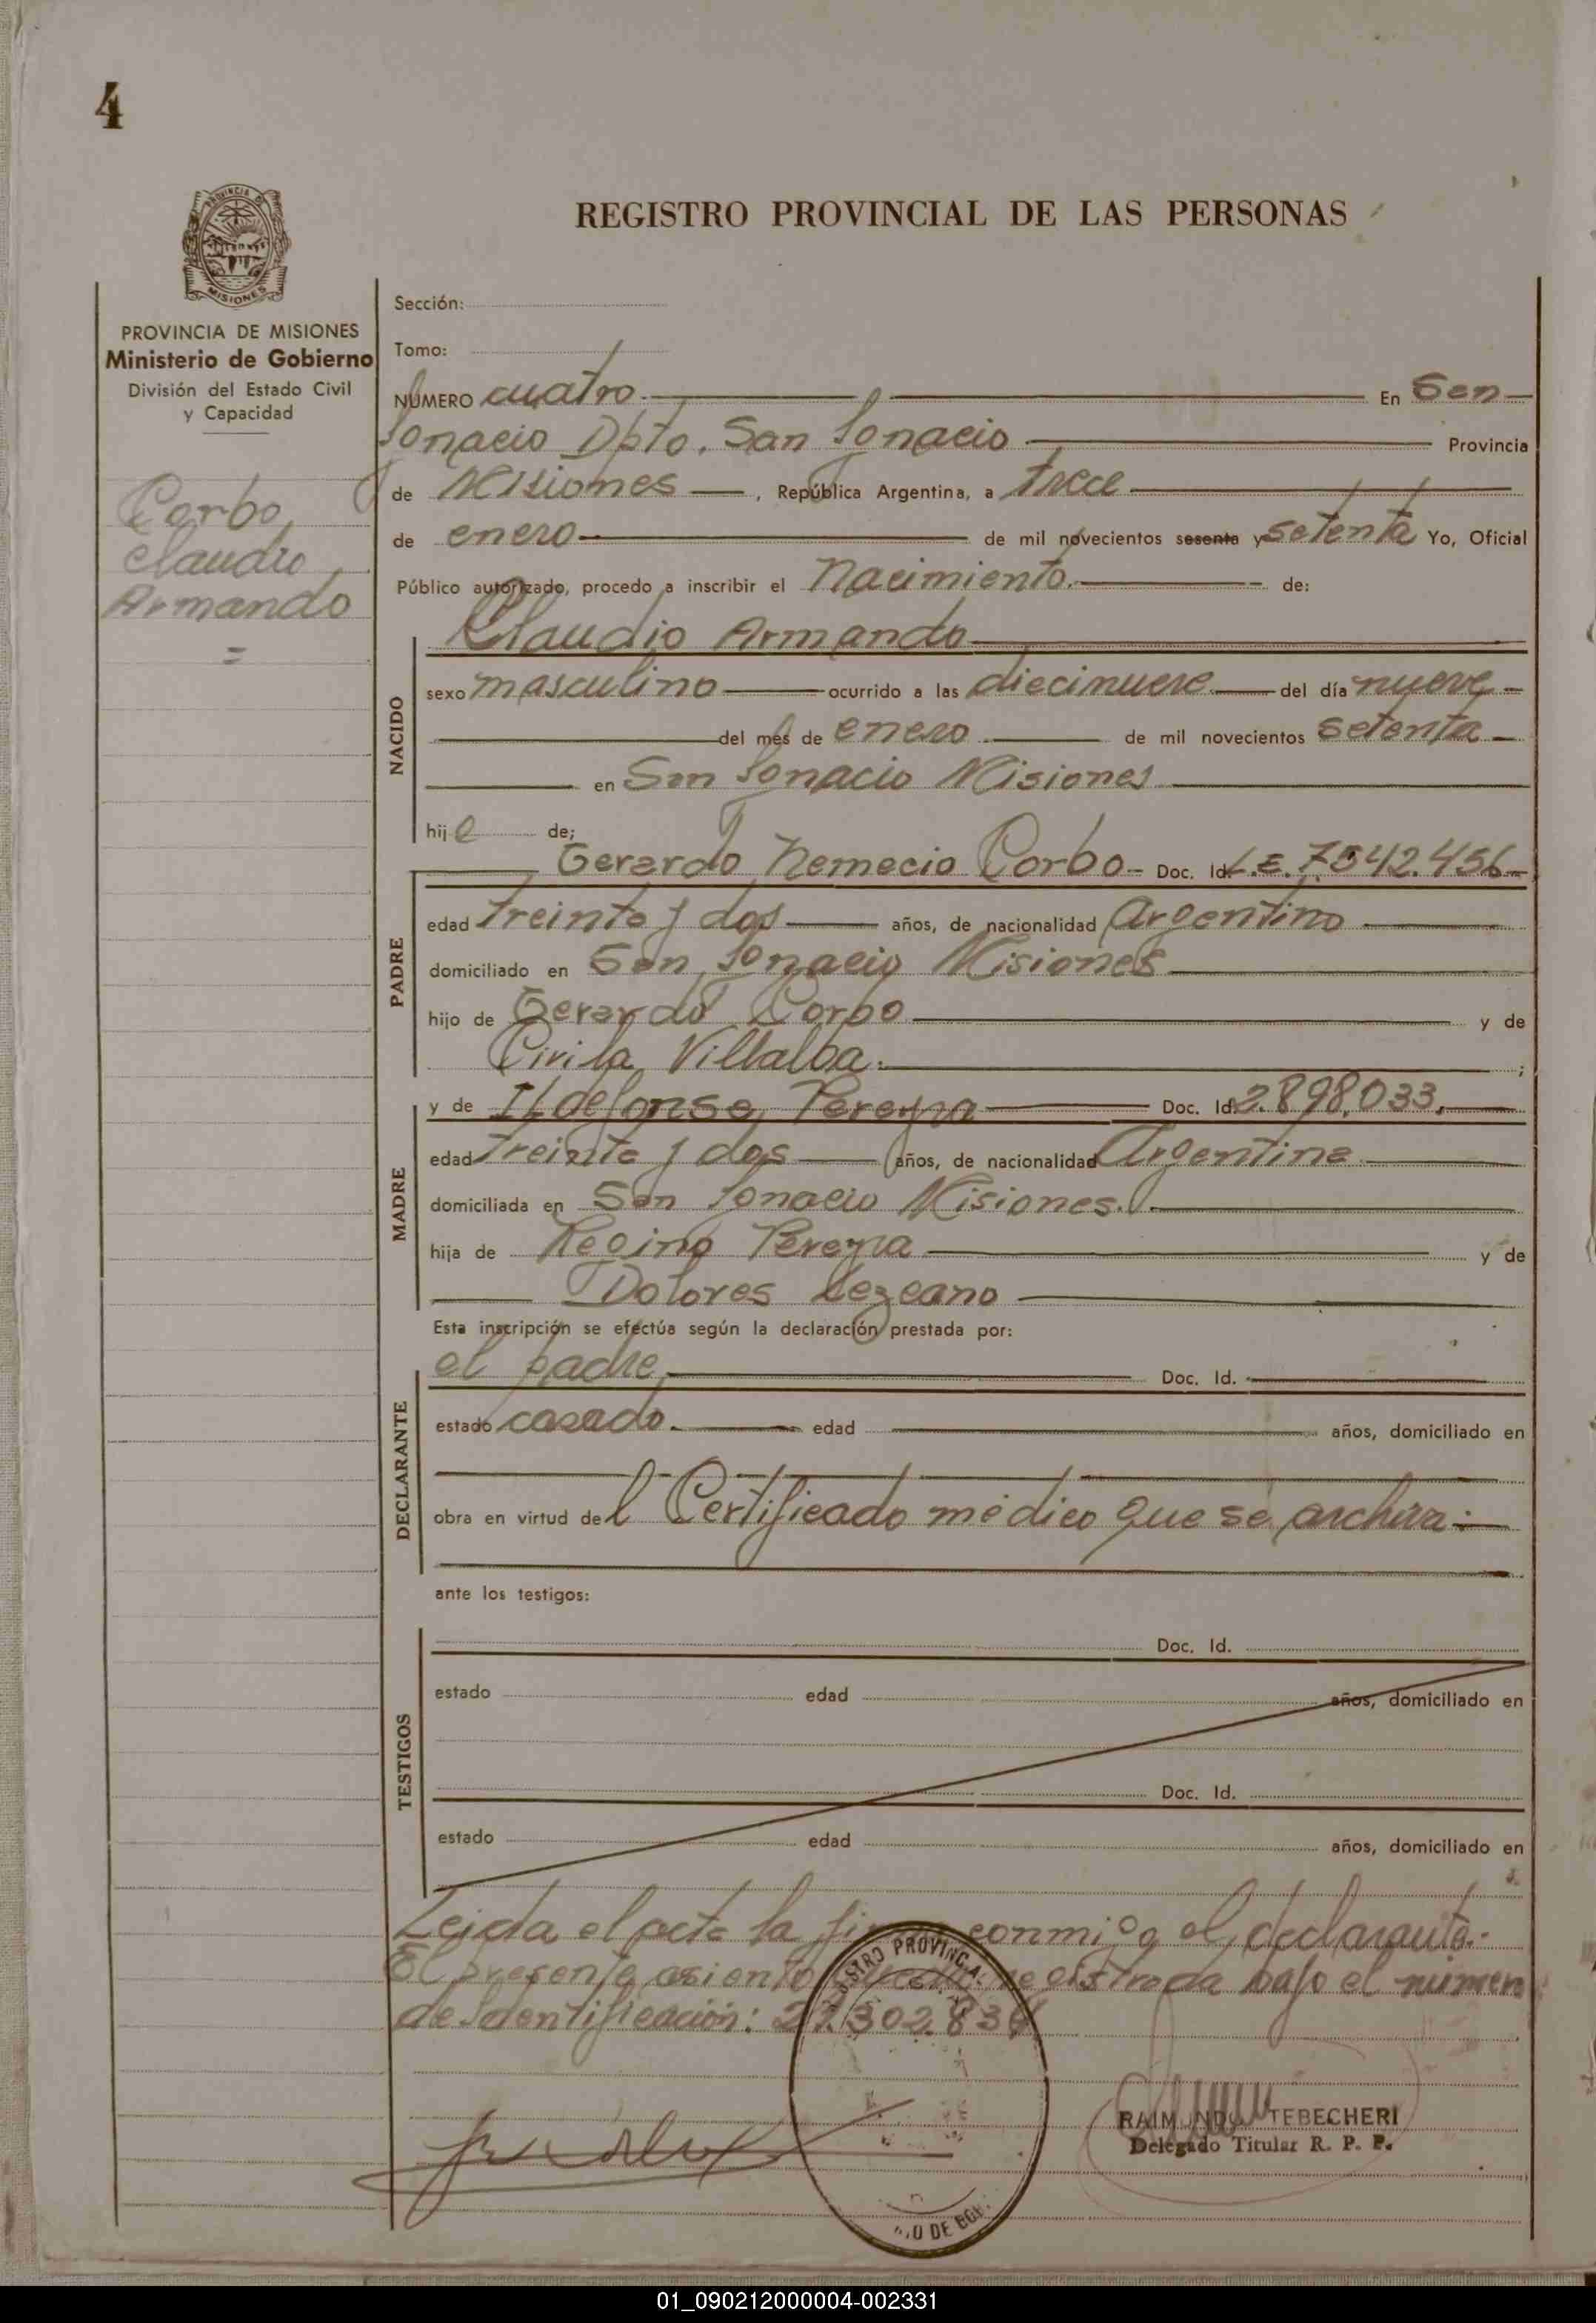 4
PROVINCIA DE
MISIONES
REGISTRO PROVINCIAL DE LAS PERSONAS
PROVINCIA DE MISIONES
Ministerio de Gobierno
División del Estado Civil
y Capacidad
Corbo
Claudio
Armando
Sección:
Tomo:
NUMERO cuatro. En San
Ignacio Dpto. San Ignacio Provincia
de Misiones, República Argentina, a trece
de enero de mil novecientos sesenta y setenta Yo, Oficial
Público autorizado, procedo a inscribir el Nacimiento. de:
Claudio Armando
NACIDO
sexo masculino ocurrido a las diecinueve del día nueve
del més de enero de mil novecientos setenta
en San Ignacio Misiones
hijo de;
Gerardo Nemecio Corbo Doc. Id. L.E. 7.542.456
PADRE
edad treinta y dos años, de nacionalidad Argentino
domiciliado en San Ignacio Misiones
hijo de Gerardo Corbo y de
Civila Villalba. ;
y de Ildefonsa Pereyra Doc. Id. 2.898.033.
MADRE
edad treinta y dos años, de nacionalidad Argentina
domiciliada en San Ignacio Misiones.
hija de Regino Pereyra y de
Dolores Lezcano
Esta inscripción se efectúa según la declaración prestada por:
el padre Doc. Id.
DECLARANTE
estado casado. edad años, domiciliado en
obra en virtud del Certificado médico que se archiva.
ante los testigos:
TESTIGOS
Doc. Id.
estado edad años, domiciliado en
Doc. Id.
estado edad años, domiciliado en
Leida el acta la conmigo el declarante.
El presente asiento registrada bajo el número
de Identificación: 21.302.834
RAIMUNDO TEBECHERI
Delegado Titular R. P. P.
01_090212000004-002331